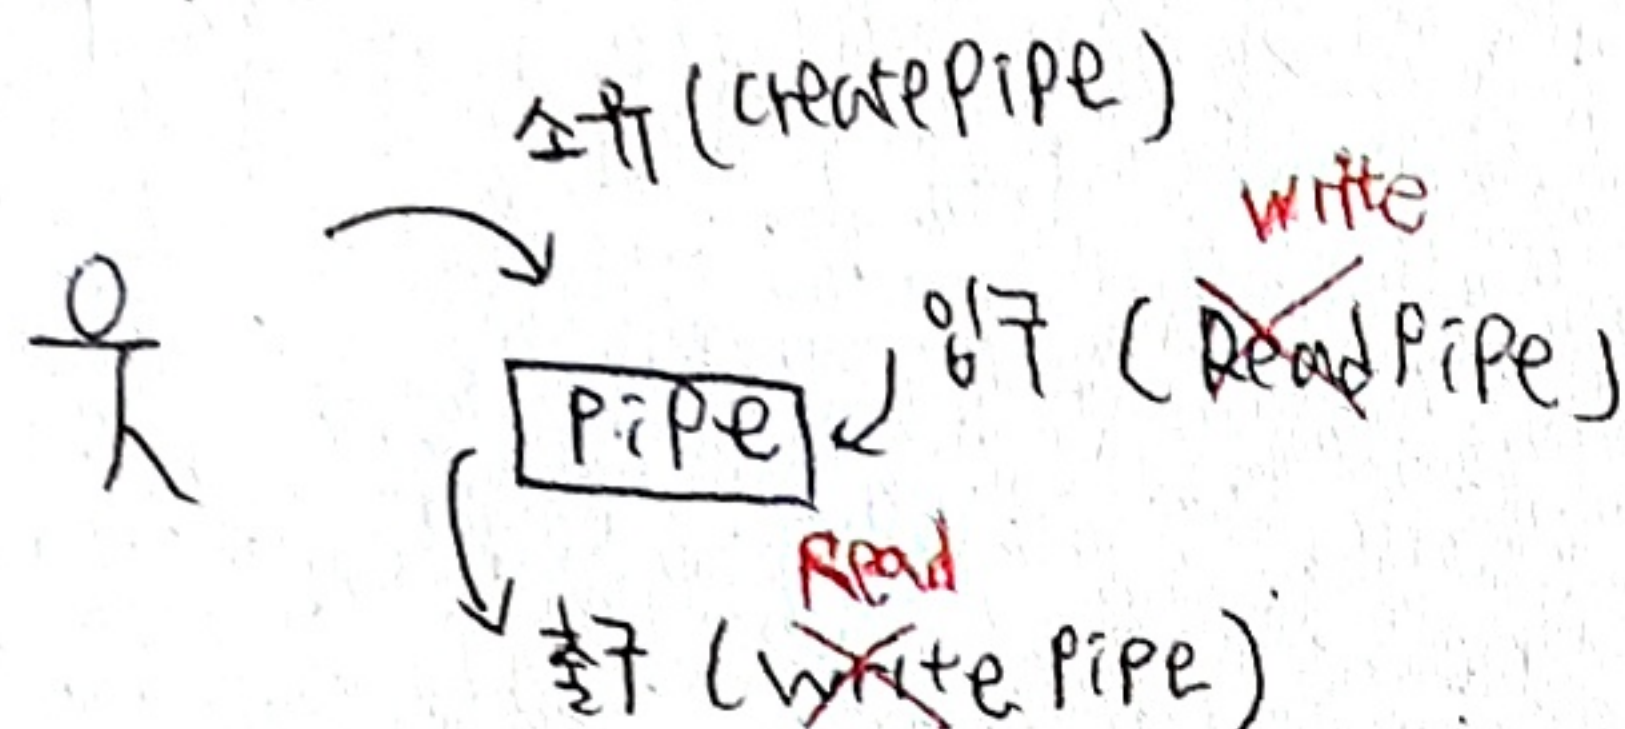 소유 (createpipe)
write
입구 (Read Pipe)
pipe
Read
출구 (write pipe)